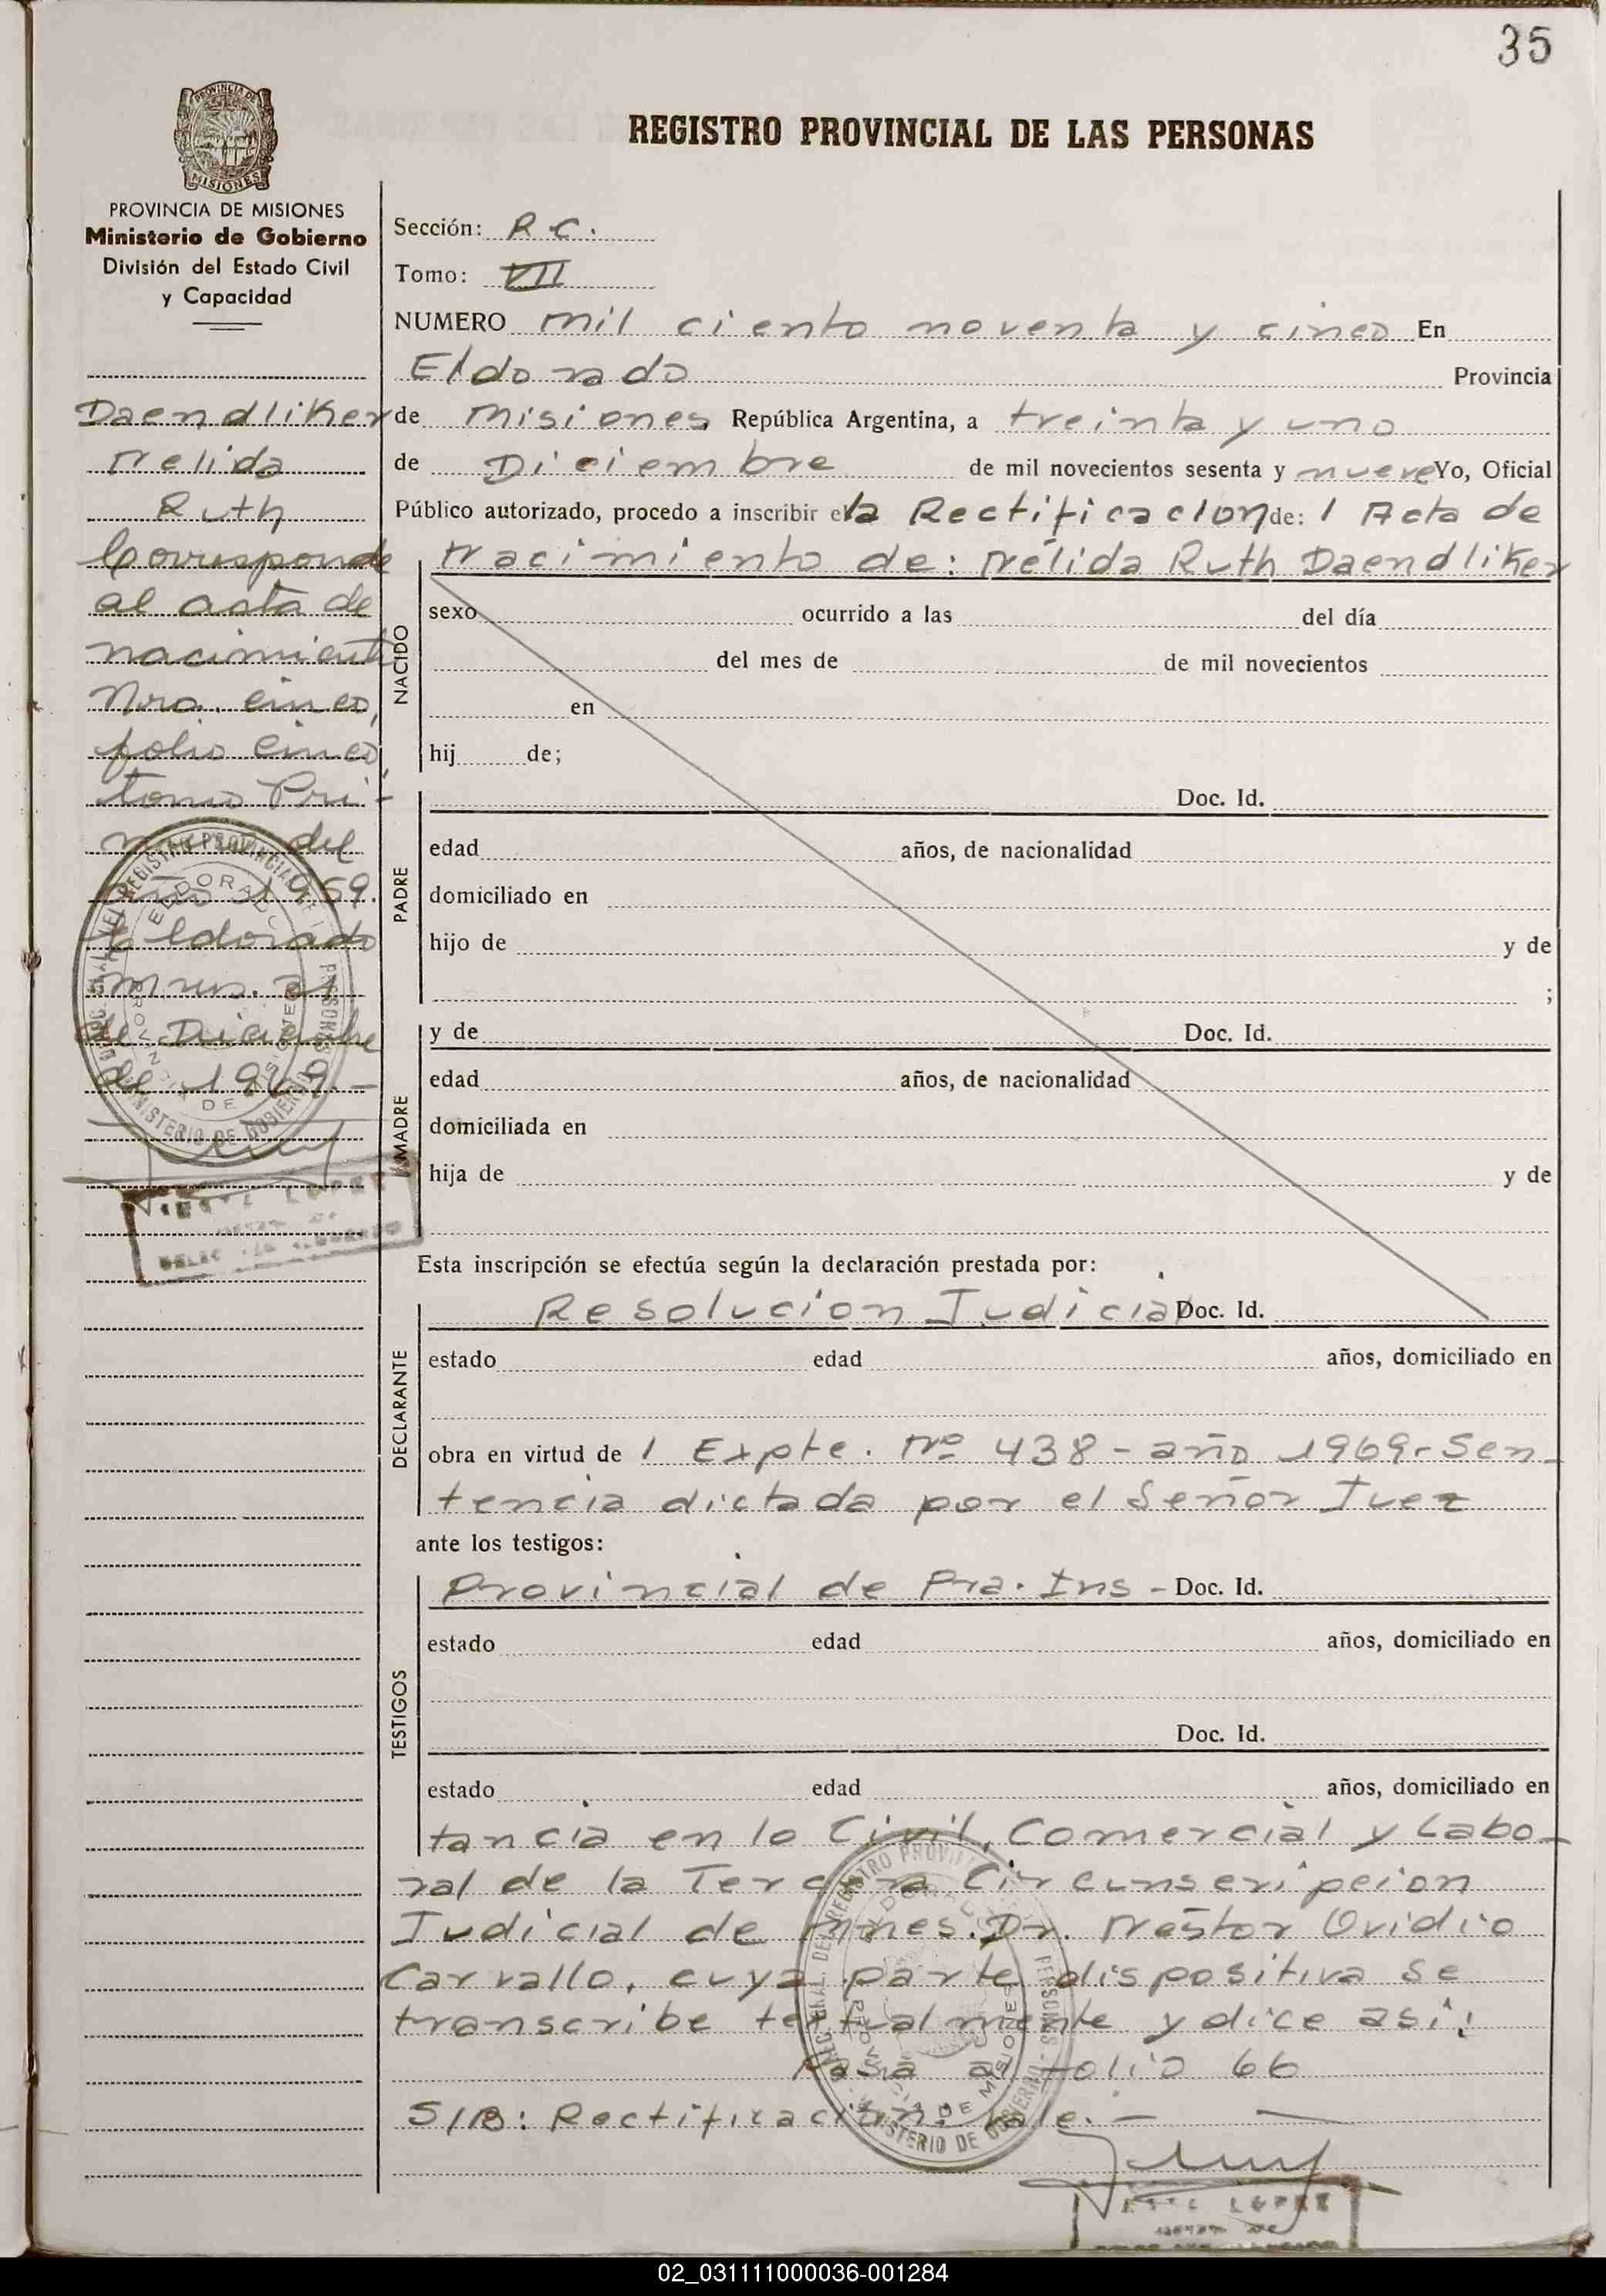 35
REGISTRO PROVINCIAL DE LAS PERSONAS
PROVINCIA DE
MISIONES
PROVINCIA DE MISIONES
Ministerio de Gobierno
División del Estado Civil
y Capacidad
Daendliker
Nelida
Ruth
Corresponde
al acta de
nacimiento
Nro. cinco,
folio cinco,
tomo Pri-
mero del
año 1959.
Eldorado
Mnes. 31
de Diciembre
de 1969.-
Sección: R C.
Tomo: VII
NUMERO Mil ciento noventa y cinco En
Eldorado Provincia
de Misiones República Argentina, a treinta y uno
de Diciembre de mil novecientos sesenta y nueve Yo, Oficial
Público autorizado, procedo a inscribir el la Rectificacion de: 1 Acta de
NACIDO
Nacimiento de: Nélida Ruth Daendliker
sexo ocurrido a las del día
del mes de de mil novecientos
en
hij de;
PADRE
Doc. Id.
edad años, de nacionalidad
domiciliado en
hijo de y de
;
MADRE
y de Doc. Id.
edad años, de nacionalidad
domiciliada en
hija de y de
Esta inscripción se efectúa según la declaración prestada por:
DECLARANTE
Resolucion Judicial Doc. Id.
estado edad años, domiciliado en
obra en virtud de 1 Expte. Nº 438 - año 1969 - Sen-
tencia dictada por el Señor Juez
ante los testigos:
TESTIGOS
Provincial de Pra. Ins - Doc. Id.
estado edad años, domiciliado en
Doc. Id.
estado edad años, domiciliado en
tancia en lo Civil, Comercial y Labo-
ral de la Tercera Circunscripcion
Judicial de Mnes. Dr. Nestor Ovidio
Carvallo, cuya parte dispositiva se
transcribe textualmente y dice asi:
Pasa al Folio 66
S/B: Rectificacion: Vale. -
LOPEZ
02_031111000036-001284